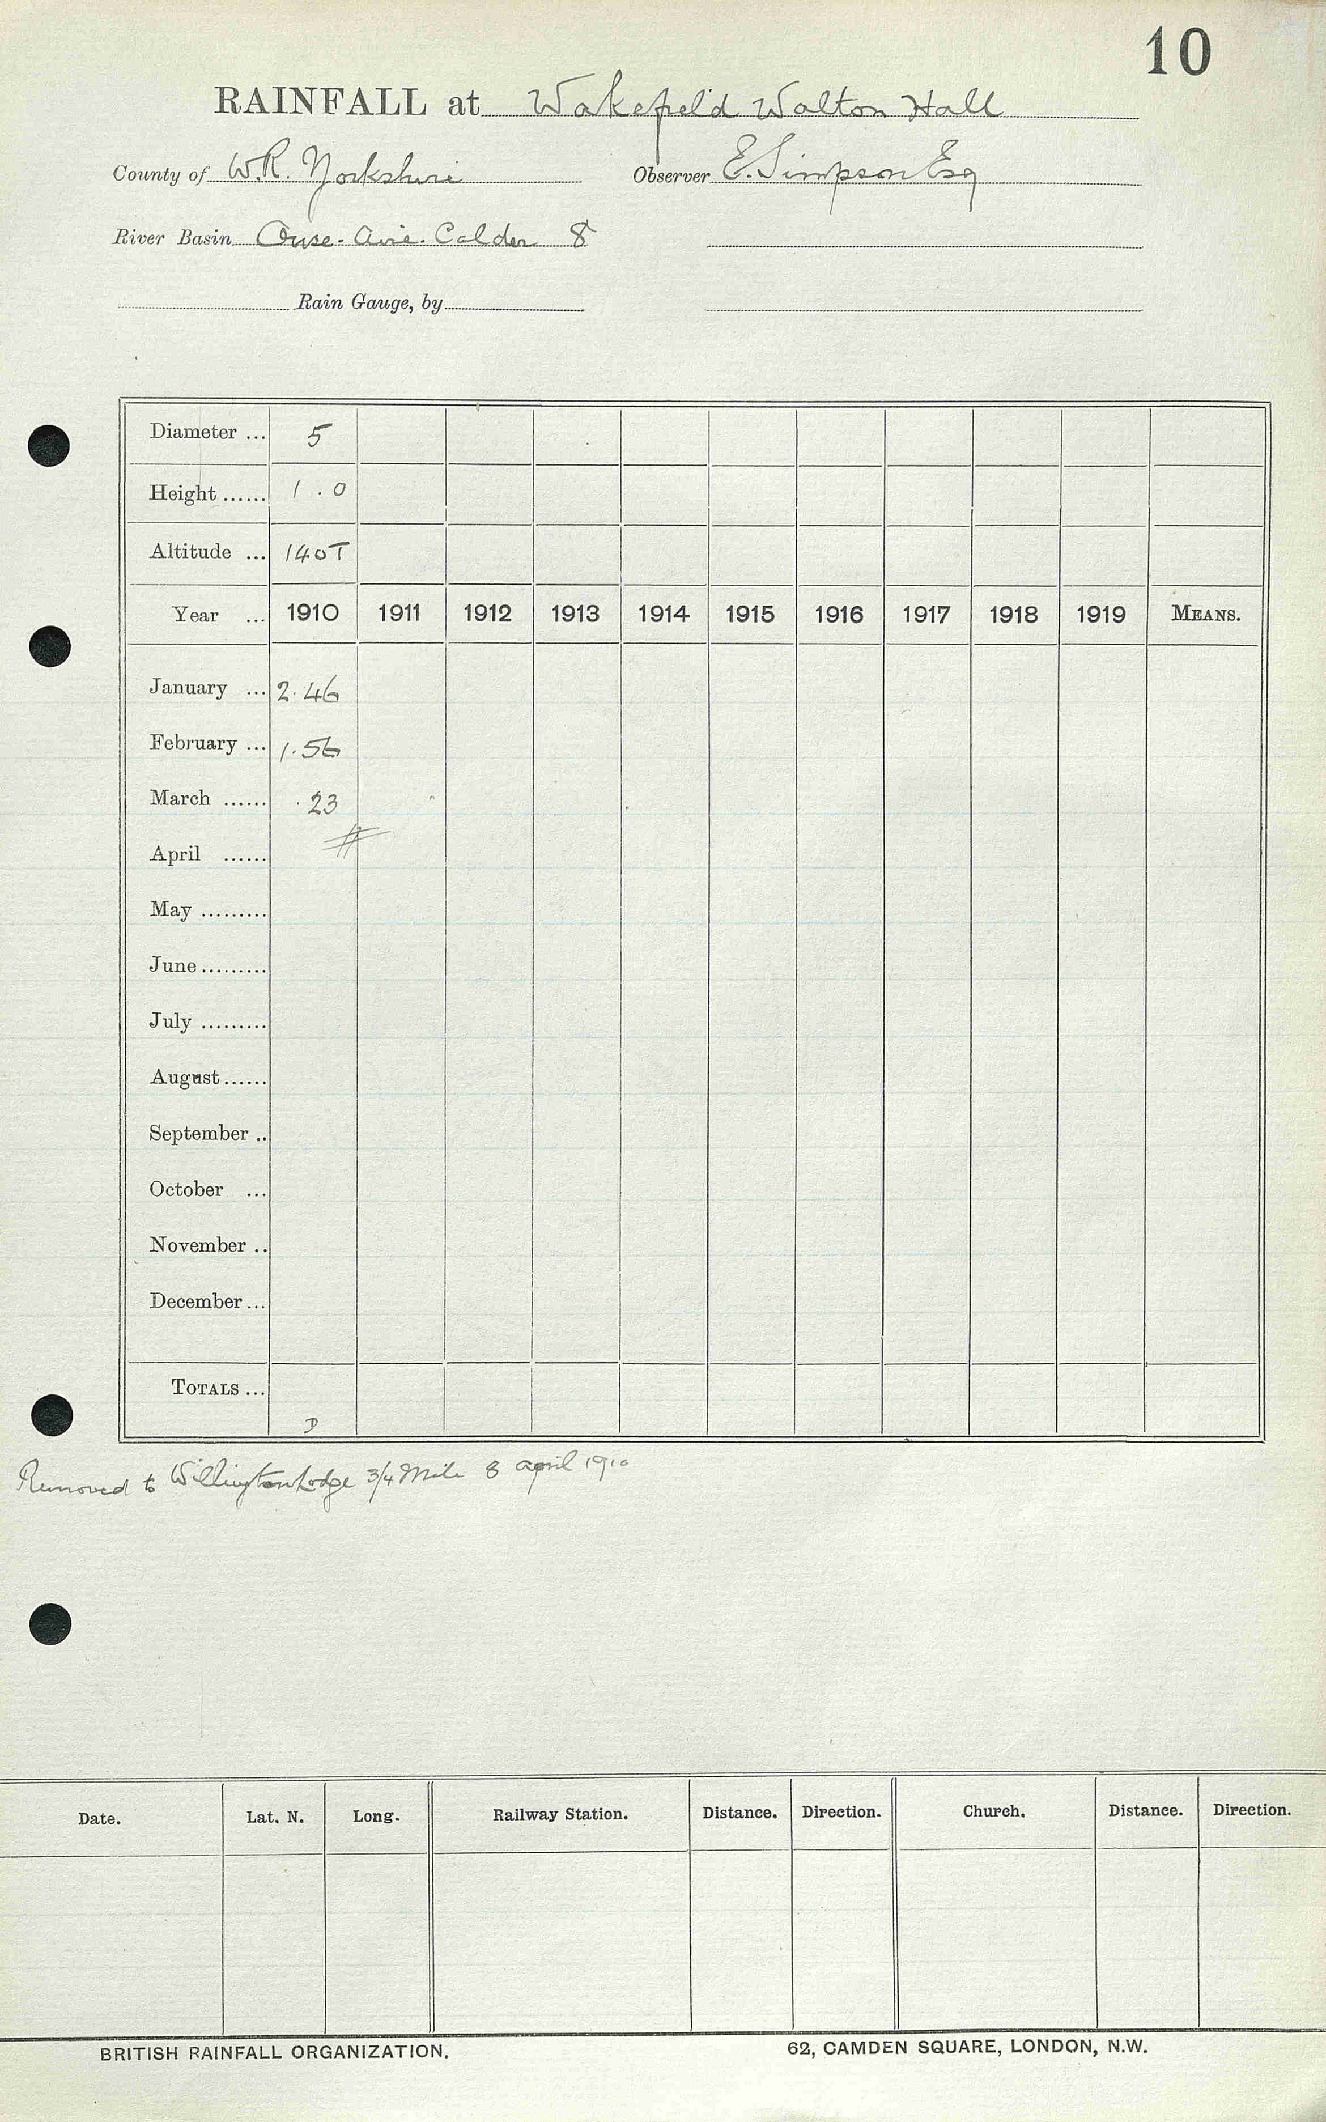 10
RAINFALL at Wakefield Walton Hall
County of W.R. Yorkshire Observer E. Simpson Esq
River Basin Ouse. Aire. Calder 8
Rain Gauge, by
Diameter ... 5
Height ...... 1 . 0
Altitude ... 140T
Year ... 1910 1911 1912 1913 1914 1915 1916 1917 1918 1919 MEANS.
January ... 2.46
February ... 1.56
March ...... .23
April ...... #
May .........
June .........
July .........
August ......
September ..
October ...
November ..
December ...
TOTALS ...
D
Removed to Lodge 3/4 Mile 8 april 1910
Date. Lat. N. Long. Railway Station. Distance. Direction. Church. Distance. Direction.
BRITISH RAINFALL ORGANIZATION. 62, CAMDEN SQUARE, LONDON, N.W.